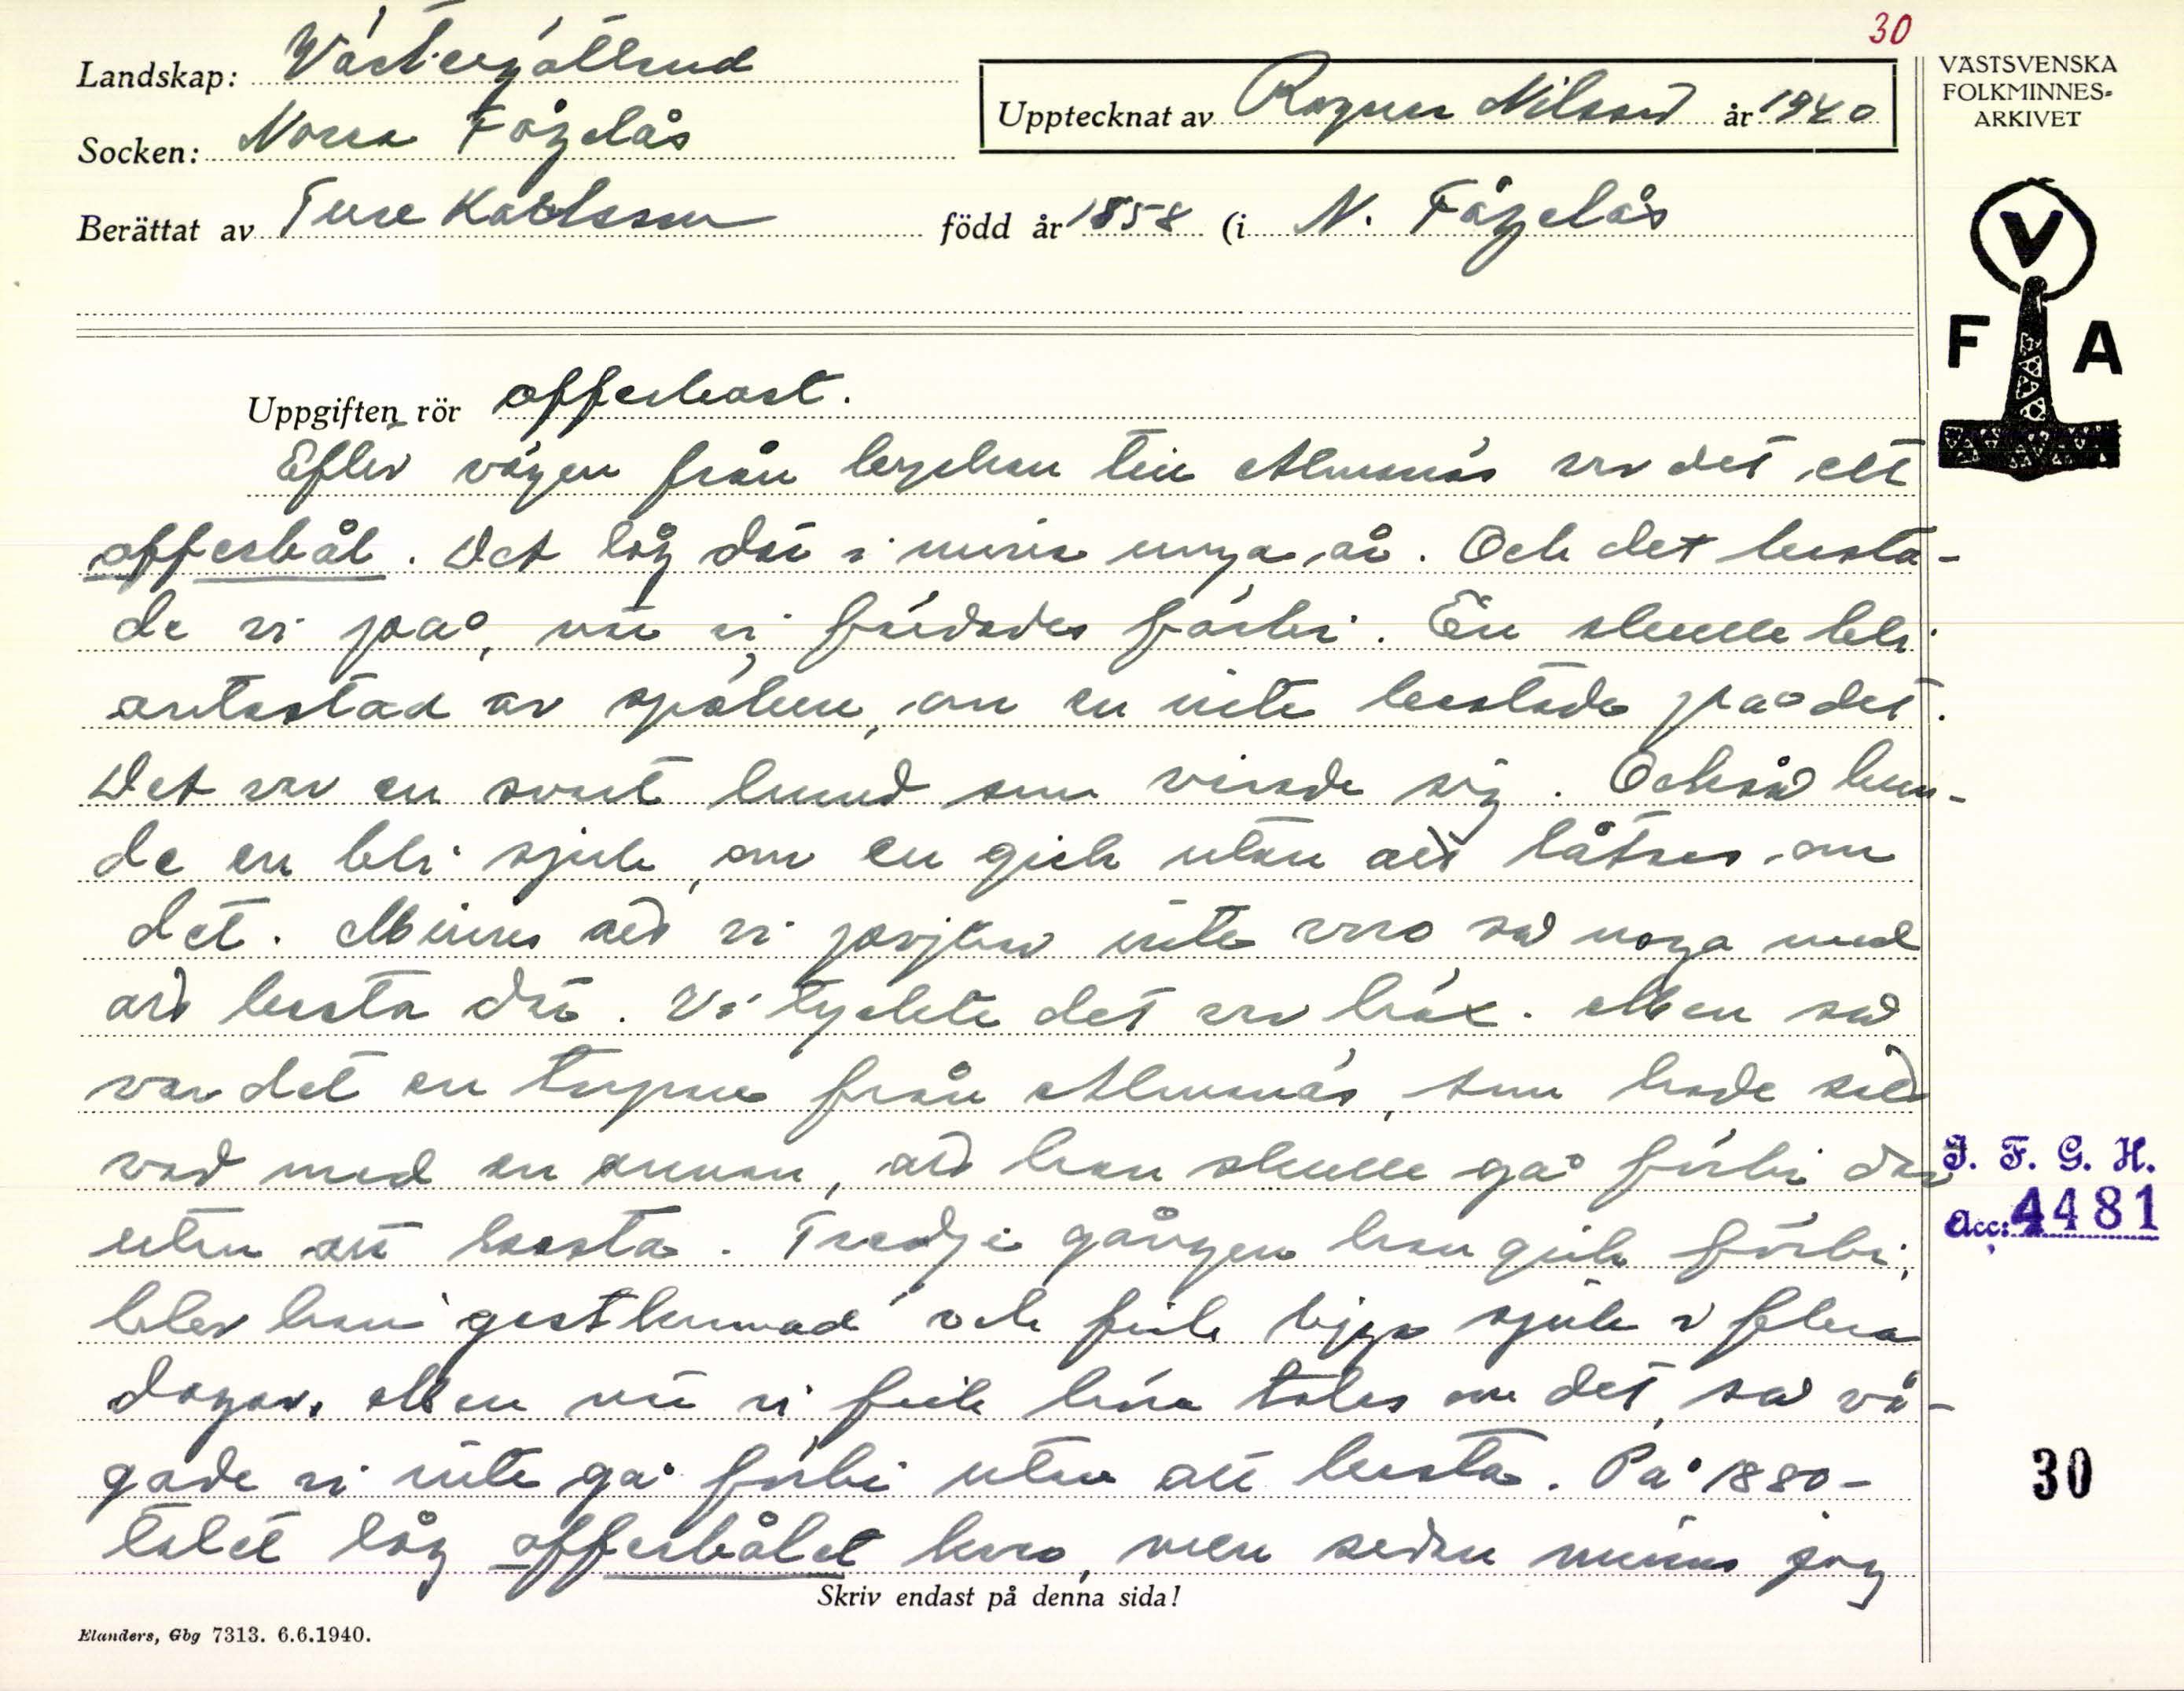 30
Landskap: Västergötland
Socken: Norra Fågelås
Upptecknat av Ragnar Nilsson år 1940
Berättat av Ture Karlsson född år 1858 (i N. Fågelås
VÄSTSVENSKA
FOLKMINNES-
ARKIVET
V
F A
Uppgiften rör offerkast.
Efter vägen från kyrkan till Almnäs var det ett
offerbål. Det låg där i mina unga år. Och det kasta-
de vi på, när vi färdades förbi. En skulle bli
antastad av spöken, om en inte kastade på det.
Det var en svart hund som visade sig. Också kun-
de en bli sjuk, om en gick utan att låtsas om
det. Minns att vi pojkar inte voro så noga med
att kasta där. Vi tyckte det var häx. Men så
var det en torpare från Almnäs, som hade slått
vad med en annan, att han skulle gå förbi där
utan att kasta. Tredje gången han gick förbi,
blev han gastkramad och fick ligga sjuk i flera
dagar. Men när vi fick höra talas om det, så vå-
gade vi inte gå förbi utan att kasta. På 1880-
talet låg offerbålet kvar, men sedan minns jag
Skriv endast på denna sida!
Elanders, Gbg 7313. 6.6.1940.
I. F. G. H.
Acc: 4481
30